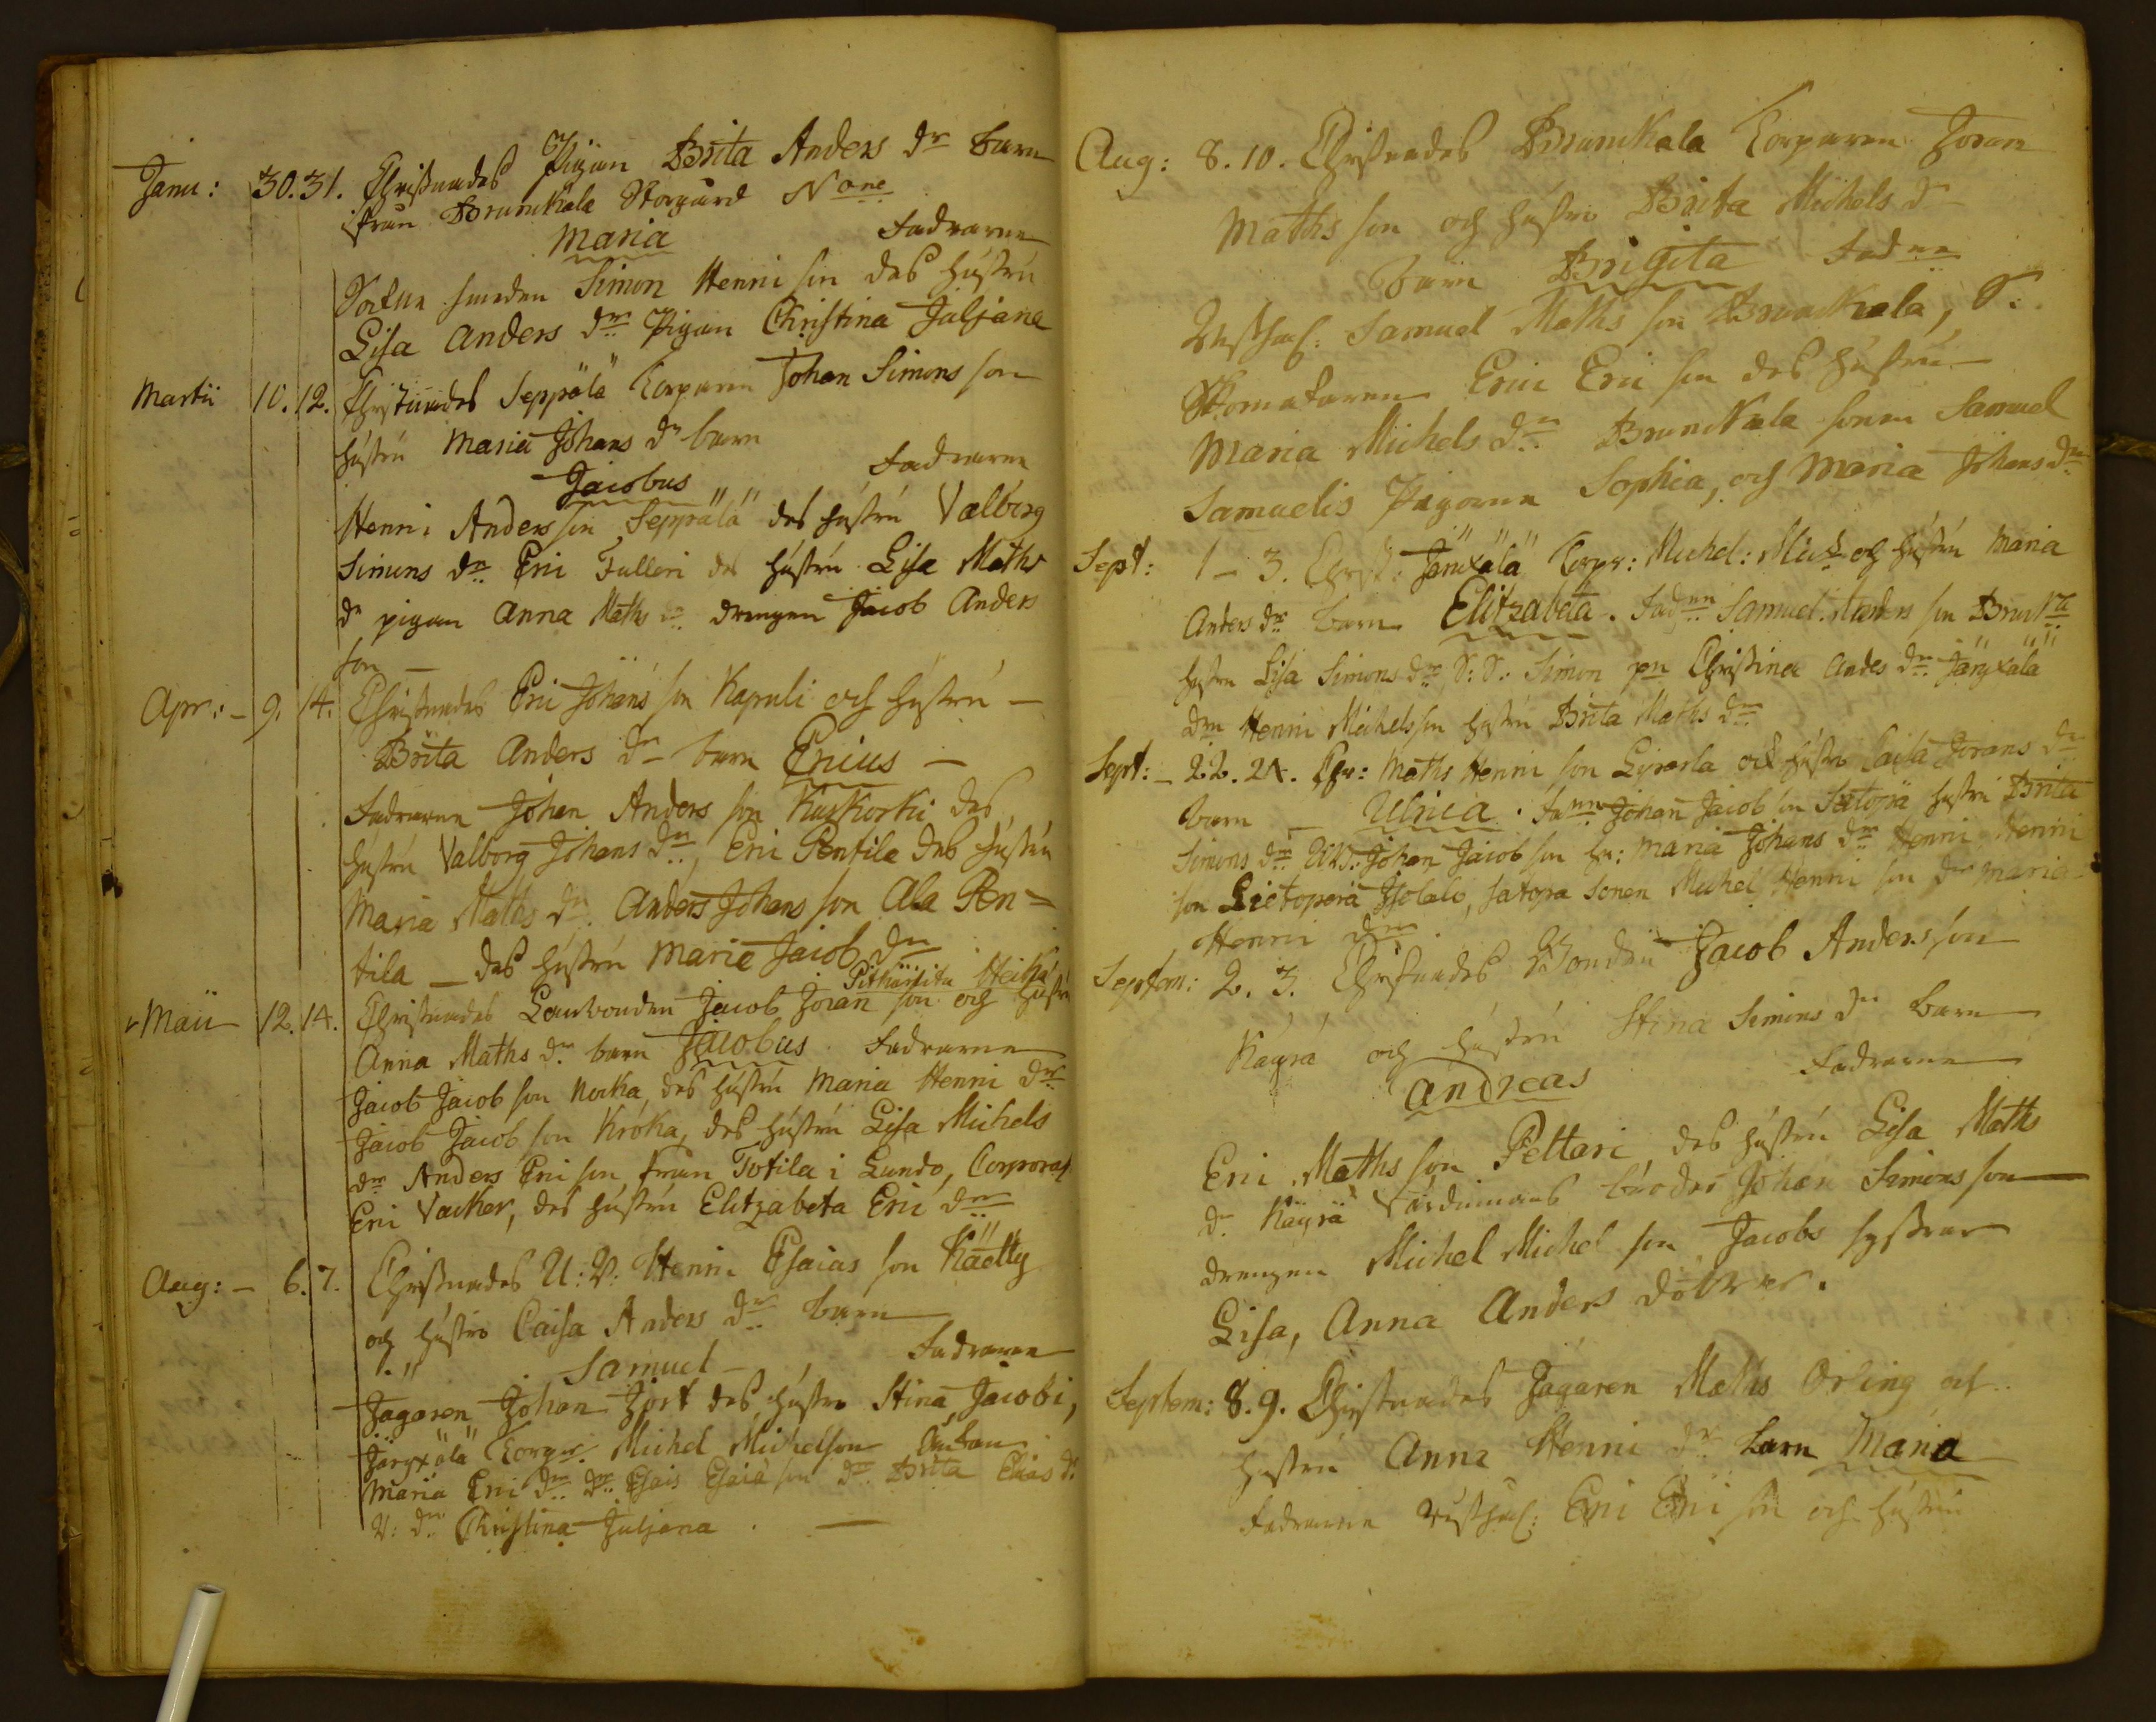 Janu: 30.31. Christnades Pigan Brita Anders dr barn
ifrån Brunnkala Storgård
Maria Fadrarne
smeden Simon Henri son des hústrú
Lisa Anders dr Pigan Christina Juljana
Martii 10.12. Christnades Seppälä Torparen Johan Simons son
hústrú Maria Johans dr barn
Jacobus Fadrarne
Henri Anders son Seppälä des hústrú Valborg
Simons dr Eric Fulleri des hústrú Lisa Maths
dr pigan Anna Maths dr drengen Jacob Anders
son —
Apr: – 9. 14. Christnades Eric Johans son Kapuli och hústrú —
Brita Anders dr barn Ericus —
Fadrarne Johan Anders son Kuskorki des
hústrú Valborg Johans dr, Eric Pentila des hústrú
Maria Maths dr. Anders Johans son Ala Pen=
tila — des hústrú Maria Jacob dr
Heikka
Maii 12.14. Christnades Landbonden Jacob Joran son och hústrú
Anna Maths dr barn Jacobus Fadrarne
Jacob Jacob son Nocka, des hústrú Maria Henri dr
Jacob Jacob son Króka, des hústrú Lisa Michels
dr Anders Eric son frun Totila i Lundo, Corporal
Eric Vacker, des hústrú Elitzabeta Eric dr
Aug: – 6. 7. Christnades U: V: Henric Esaias son Käetty
och hústro Caisa Anders dr barn
Samuel — Fadrarne
Jagaren Johan Hjort des hústro Stina Jacobi,
Järyxölä Torpr. Michel Michelson
Maria Eric dr dr Esais Esaia son dr Brita Elias dr
V: dr Christina Juljana . —
Aug: 8. 10. Christnades Brunnkala Torparen Joran
Maths son och hústro Brita Michels dr
barn Brigita Fadne
Samuel Maths son Brunnkala, S:
Skomakaren Eric Eric son des hústrú
Maria Michels dr Brunnkala sonen Samuel
Samuelis Pigorna Sophia, och Maria Johans dr
Sept: 1 – 3. Christ: Järvxälä Torpr: Michel: Mich och hústrú Maria
Anders dr barn Elitzabeta. Fadne Samuel Anders son
hustru Lisa Simons dr S: S: Simon pn Christina Andes dr Järyxälä
drn Henri Michelsson hustrú Brita Maths dr
Sept: – 22. 24. Chr: Maths Henri son och hústro Caisa Jorans dr
barn — Ulrica. Johan Jacob son Satopä hustru Brita
Simons dr Johan Jacob son hu: Maria Johans dr Henri Henri
son Lietoperä Isotalo, satopa sonen Michel Henri son dr Maria
Henri dr
Septem: 2. 3. Christnades Bonden Jacob Anders son
Käyrä och hústrú Stina Simons dr barn
Andreas Fadrarne
Eric Maths son Peltari des hústrú Lisa Maths
dr Käyrä brodor Johan Simons son
drengen Michel Michel son Jacobs systrar
Lisa, Anna Anders döttrar.
Septem: 8. 9. Christnades Jagaren Maths Orling och
hustrú Anna Henri dr barn Maria
Fadrarne Eric Eric son och hústrú